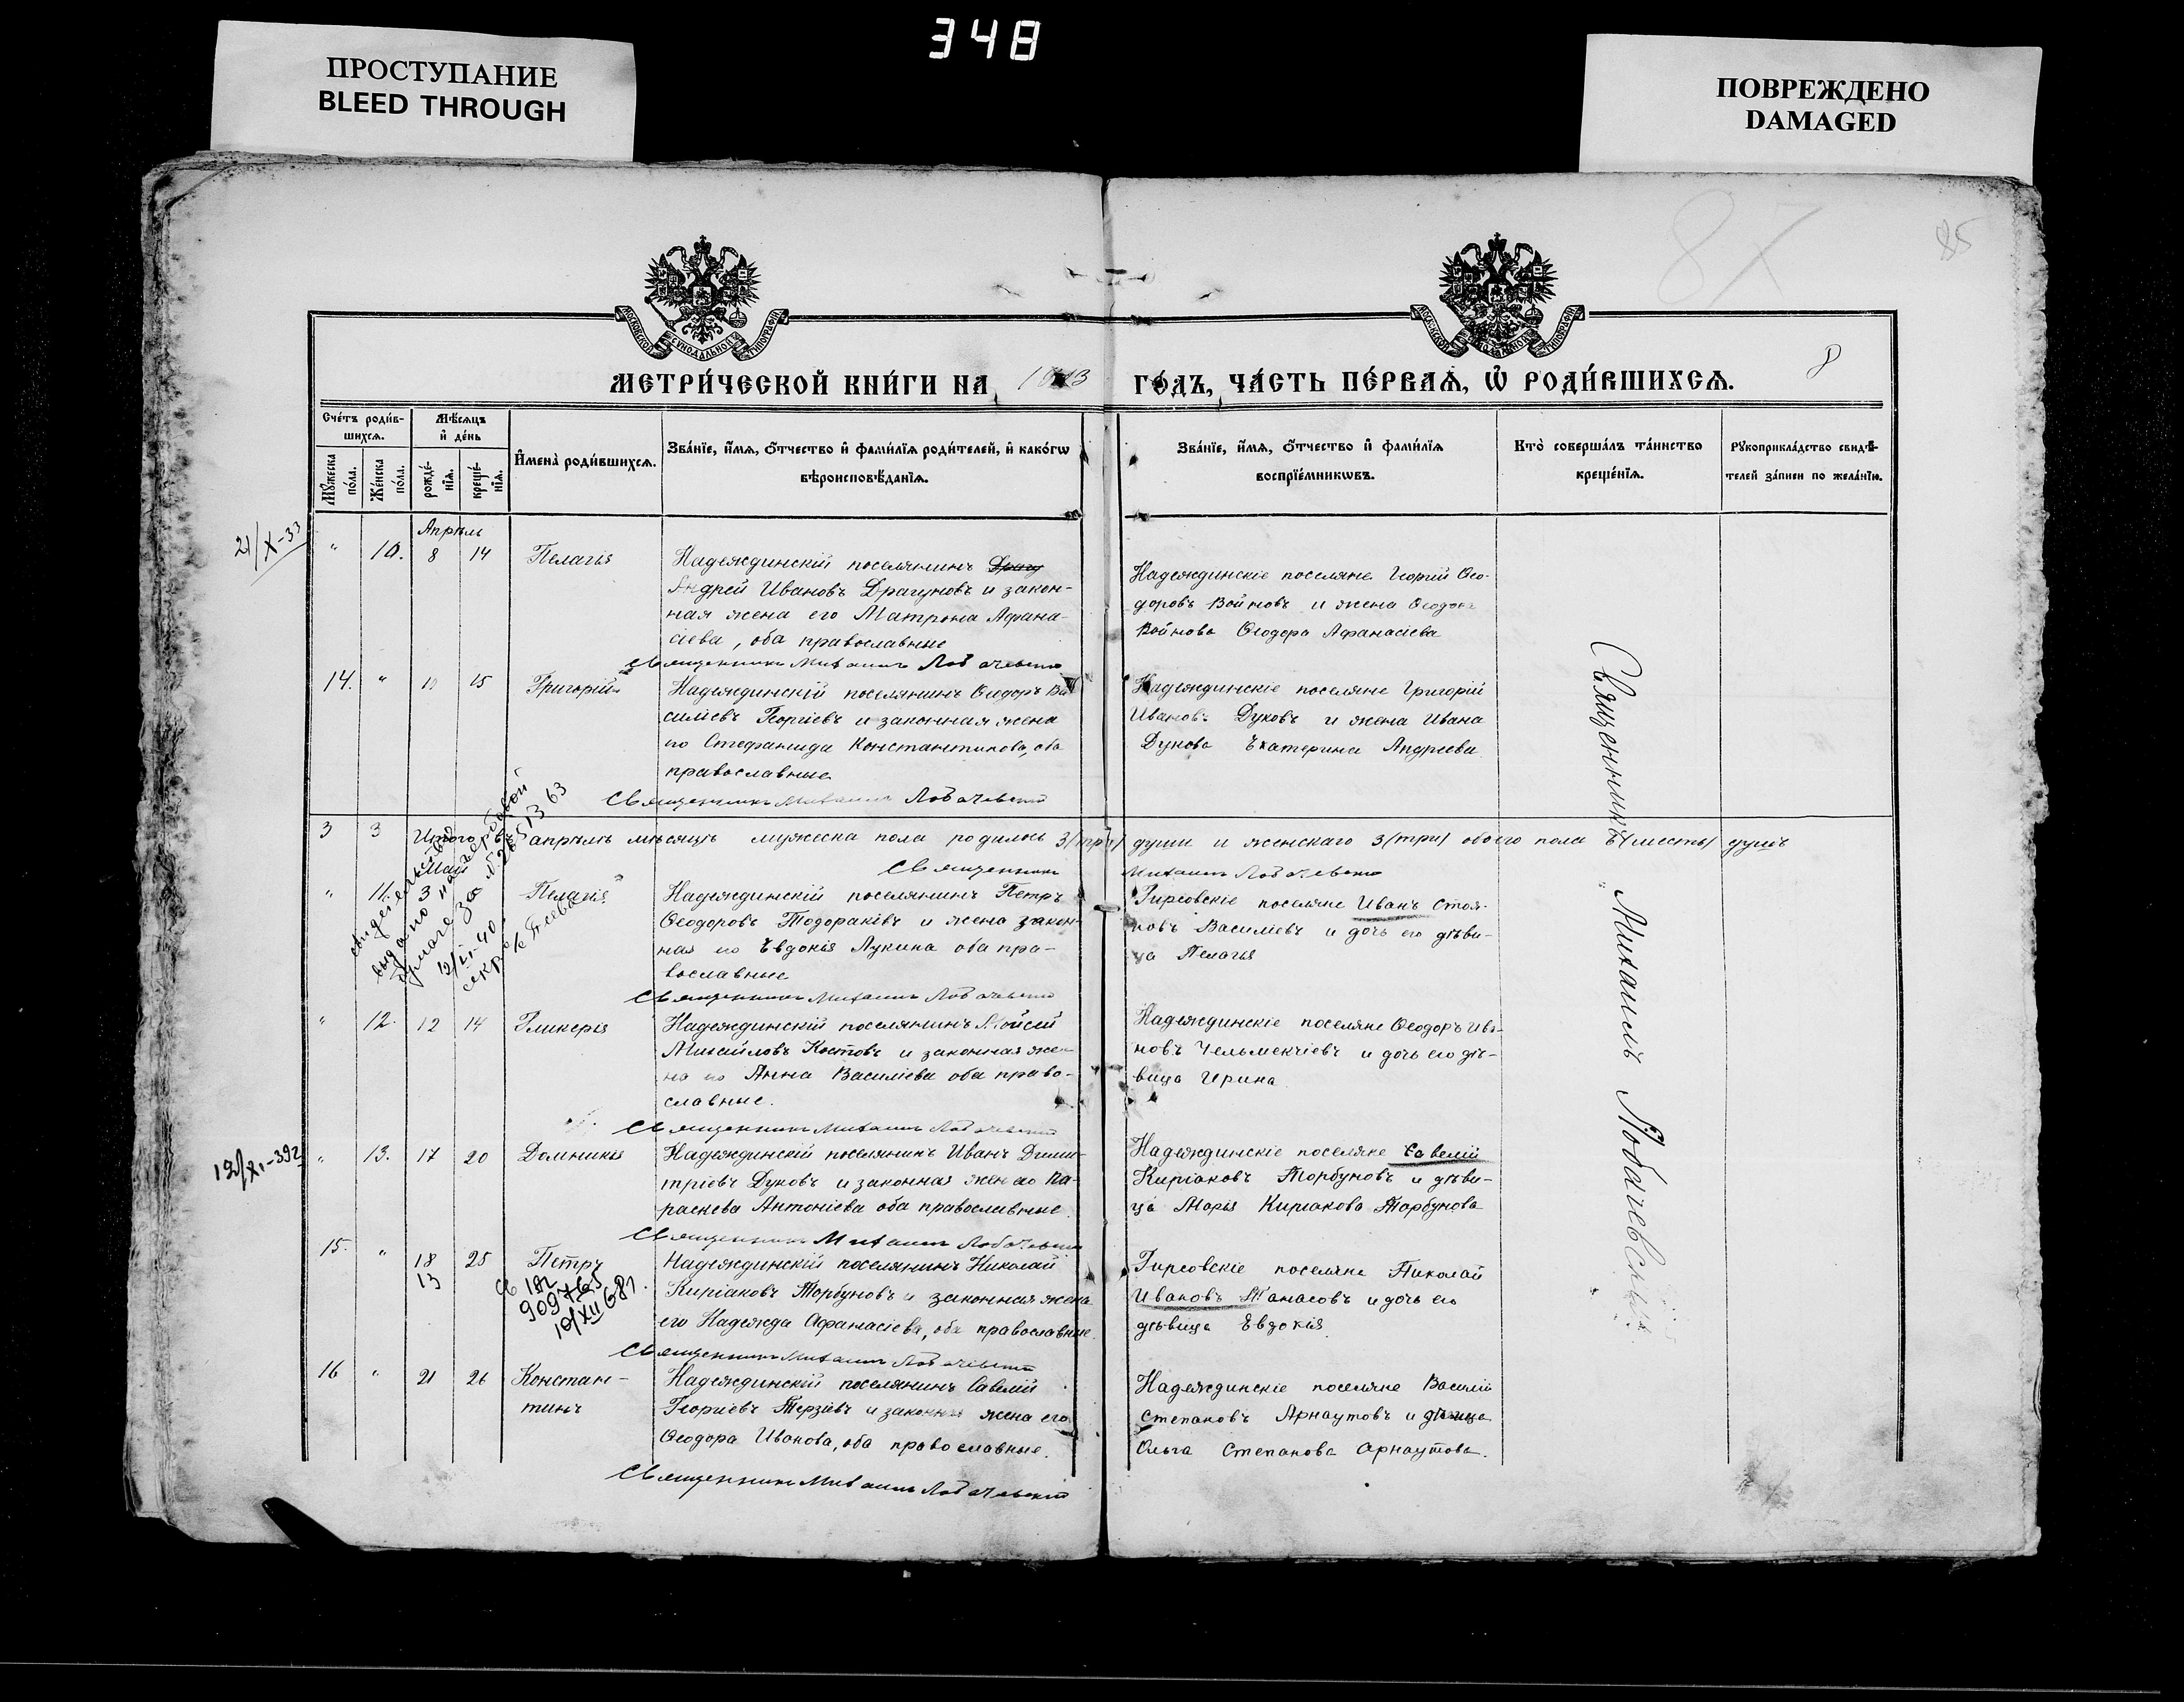 348
ПРОСТУПАНИЕ
BLEED THROUGH
ПОВРЕЖДЕНО
DAMAGED
87
85
8
МЕТРИ́ЧЕСКОЙ КНИ́ГИ НА
ГО́ДЪ, ЧА́СТЬ ПЕ́РВАѦ, Ѡ҆ РОДИ́ВШИХСѦ.
Сче́тъ роди́в-
шихсѧ.
Мѣ́сѧцъ
и҆ де́нь
Мꙋ́жеска
по́ла.
Же́нска
по́ла.
рожде́-
нїѧ.
креще́-
нїѧ.
И҆мена̀ роди́вшихсѧ.
Зва́нїе, и҆́мѧ, ѻ҆́тчество и҆ фами́лїѧ роди́телей, и҆ како́гѡ
вѣроисповѣ́данїѧ.
Зва́нїе, и҆́мѧ, ѻ҆́тчество и҆ фами́лїѧ
воспрїе́мникѡвъ.
Кто̀ соверша́лъ та́инство
креще́нїѧ.
Рꙋкоприкла́дство свидѣ́-
телей за́писи по жела́нїю.
21/X-33
Апрѣль
" 10. 8 14 Пелагія
Надеждинскій поселянинъ
Андрей Ивановъ Драгуновъ и закон-
ная жена его Матрона Афана-
сіева, оба православные
Надеждинскіе поселяне Георгій Ѳео-
доровъ Войновъ и жена
Войнова Ѳеодора Афанасіева
Священникъ Михаилъ Лобачевскій
14. " 15 Григорій
Надеждинскій поселянинъ Ѳеодоръ Ва-
силіевъ Георгіевъ и законная жена
его Стефанида Константинова, оба
православные
Надеждинскіе поселяне Григорій
Ивановъ Дуковъ и жена Ивана
Дукова Екатерина Андреева
Священникъ Михаилъ Лобачевскій
3 3 Итого въ апрѣлѣ мѣсяцѣ мужеска пола родилось 3 (три) души и женскаго 3 (три) обоего пола 6 (шесть) душъ
Священникъ Михаилъ Лобачевскій
Май
" 11. 3 Пелагія
Надеждинскій поселянинъ Петръ
Ѳеодоровъ Тодоракіевъ и жена закон-
ная его Евдокія Лукина оба пра-
вославные
Гирсовскіе поселяне Иванъ Стоя-
новъ Василіевъ и дочь его дѣви-
ца Пелагія
свидетельство
выдано на гербовой
бумаге за №
Священникъ Михаилъ Лобачевскій
" 12. 12 14 Гликерія
Надеждинскій поселянинъ Мойсей
Михайловъ Костовъ и законная же-
на его Анна Василіева оба право-
славные.
Надеждинскіе поселяне Ѳеодоръ Ива-
новъ Чельмекчіевъ и дочь его дѣ-
вица Ирина
Священникъ Михаилъ Лобачевскій
" 13. 17 20 Домникія
Надеждинскій поселянинъ Иванъ Дими-
тріевъ Дуковъ и законная жена его Па-
раскева Антоніева оба православные
Надеждинскіе поселяне Савелій
Киріаковъ Торбуновъ и дѣви-
ца Марія Киріакова Торбунова
Священникъ Михаилъ Лобачевскій
15. " 18 25 Петръ
13
Надеждинскій поселянинъ Николай
Киріаковъ Торбуновъ и законная жена
его Надежда Афанасіева, оба православные.
Гирсовскіе поселяне Николай
Ивановъ Танасовъ и дочь его
дѣвица Евдокія
10/XII 68г.
Священникъ Михаилъ Лобачевскій
16 " 21 26 Констан-
тинъ
Надеждинскій поселянинъ Савелій
Георгіевъ Терзіевъ и законная жена его
Ѳеодора Иванова, оба православные.
Надеждинскіе поселяне Василій
Степановъ Арнаутовъ и дѣвица
Ольга Степанова Арнаутова.
Священникъ Михаилъ Лобачевскій
Священникъ Михаилъ Лобачевскій